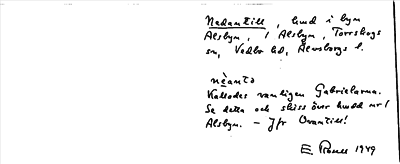 Nedantill, hmd i byn
Alsbyn, 1 Alsbyn, Torrskogs
sn, Vedbo hd, Älvsborgs l.
nèantɔ
Kallades vanligen Gabrielarna.
Se detta och skiss över hmd nr 1
Alsbyn. — Jfr Ovantill!
E. 1949